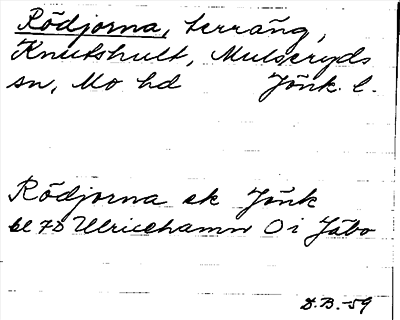 Rödjorna, terräng,
Knutshult, Mulseryds
sn, Mo hd Jönk. l.
Rödjorna ek Jönk
bl 7D Ulricehamn O i Jäbo
D.B.-59